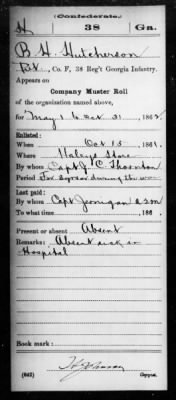 (Confederate.)
H 38 Ga.
B. H. Hutcherson
Pvt., Co. F, 38 Reg't Georgia Infantry.
Appears on
Company Muster Roll
of the organization named above,
for May 1 to Oct 31, 1862.
Enlisted:
When Oct 15, 186
Where Haleys Store
By whom Capt J. C. Thornton
Period For 3 years or during the war
Last paid:
By whom Capt Jernigan
To what time , 186 .
Present or absent Absent
Remarks: Absent sick in
Hospital
Book mark:
(642) Copyist.